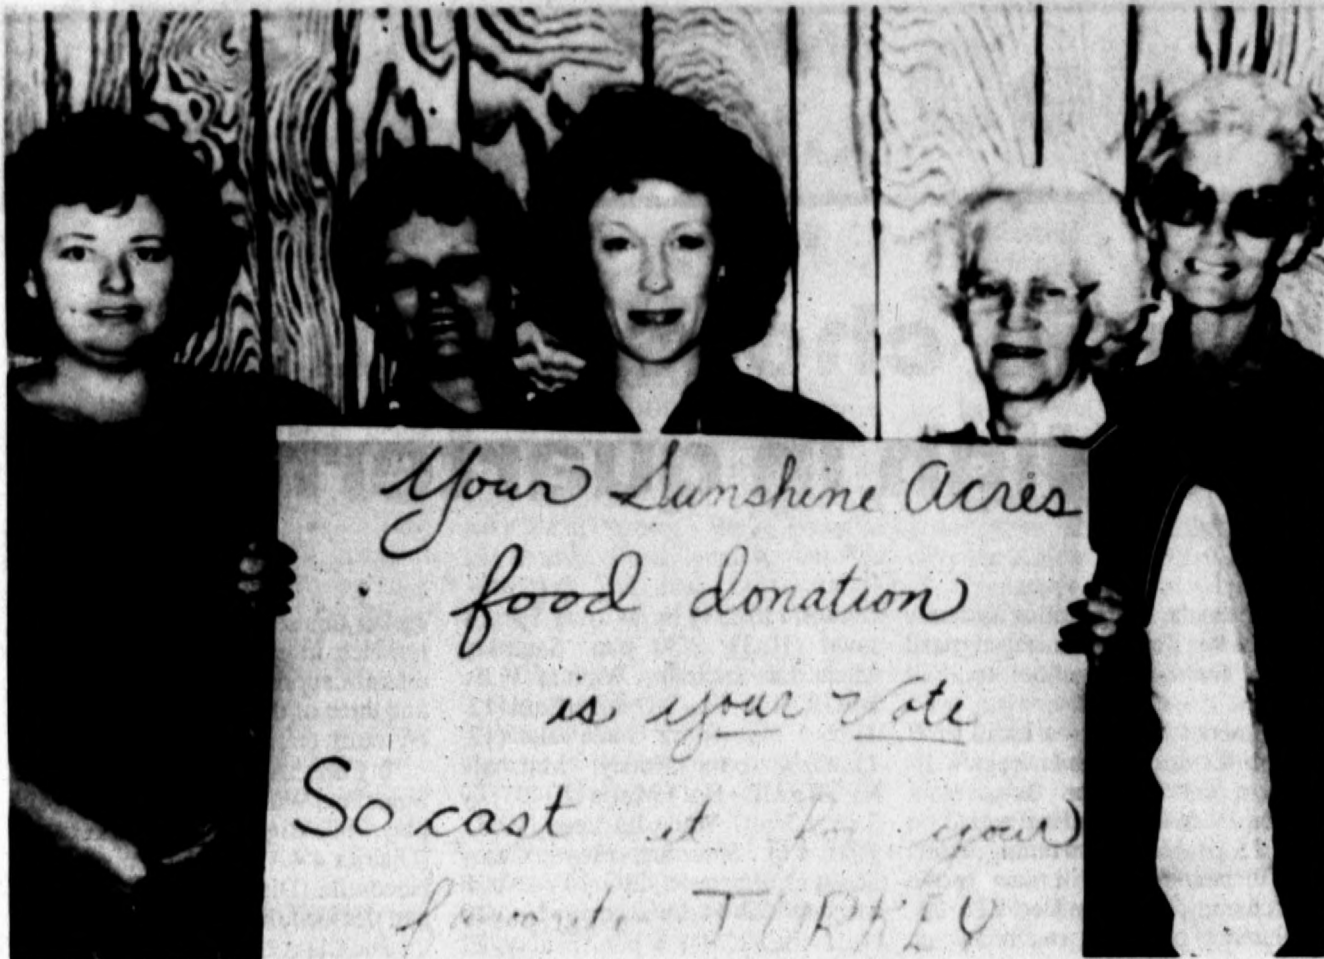 Your Sunshine Acres
food donation
is your Vote
So cast it for your
favorite TURKEY